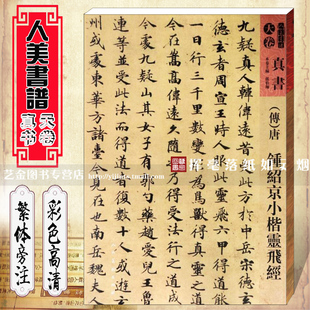 人美書譜
真书
天卷
繁体旁注
彩色高清
艺金图书专营店
天卷
真書
(傳)唐
鍾紹京小楷靈飛經
九疑真人韓偉遠昔受此方於中岳宋德玄
德玄者周宣王時人服此靈飛六甲得道能
一日行三千里數變形為鳥獸得真靈之道
今在嵩高偉遠久隨之乃得受法行之道成
今處九疑山其女子有郭勺藥趙愛兒王魯
連等並受此法而得道者復數十人或遊玄
州或處東華方諸臺今見在也南岳魏夫人